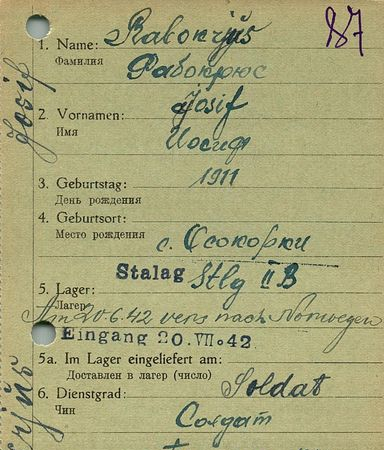 87
1. Name: Rabokrÿs
Фамилия Рабокрюс
2. Vornamen: Josif
Имя Иосиф
3. Geburtstag: 1911
День рождения
4. Geburtsort:
Место рождения с. Осокорки
Stalag Stlg II B
5. Lager:
Лагерь
Am 20.6.42 vers nach Norwegen
Eingang 20. VII. 42
5a. Im Lager eingeliefert am:
Доставлен в лагер (число)
6. Dienstgrad: Soldat
Чин Солдат
Josif